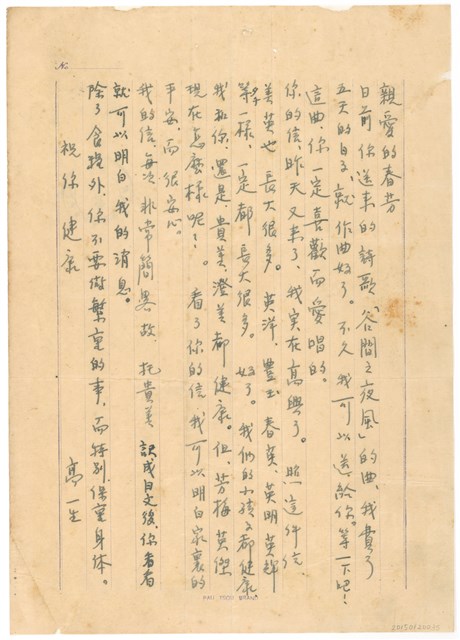 親愛的春芳
日前你送来的詩歌「谷間之夜風」的曲、我費了
五天的日子就作曲好了。不久我可以送給你。等一下吧!
這曲、你一定喜歡而愛唱的。
你的信、昨天又来了、我实在高興了。照這件信、
美英也長大很多。英洋、豊玉、春英、英明、英輝
等一樣、一定都長大很多。好了。我們的小孩子都健康
我和你、還是、貴美、澄美都健康。但、芳梅、英傑
現在怎麽樣呢!。看了你的信、我可以明白家裏的
平安、而很安心。
我的信、每次非常簡畧故、托貴美訳成日文後、你看看
就可以明白我的消息。
除了食糧外、你不要做繁重的事、而特别保重身体。
祝你健康
高一生
No
2015.01.200.15